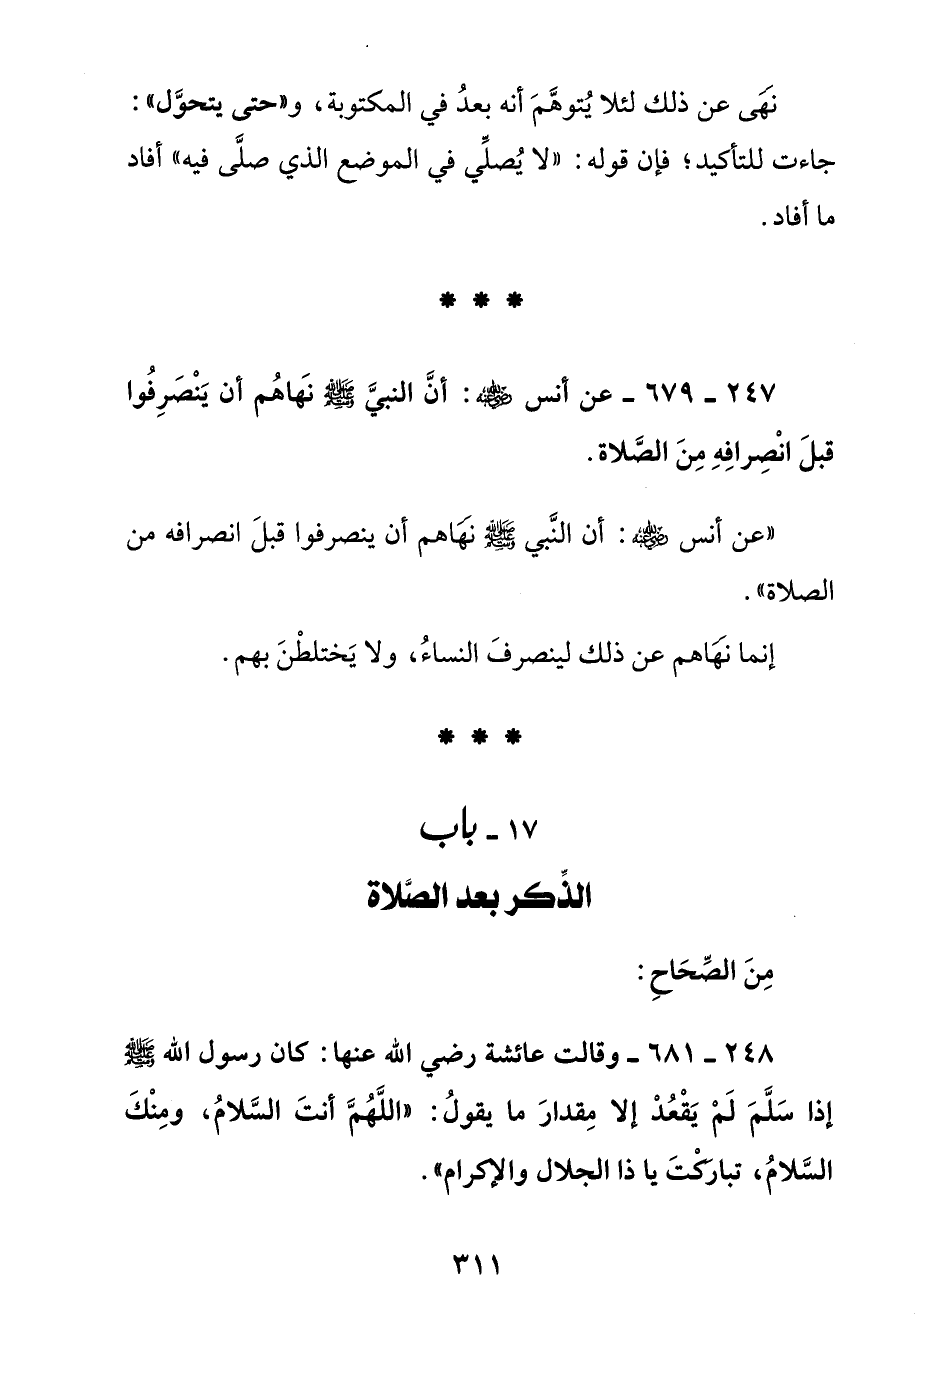 نَهَى عن ذلك لئلا يُتوهَّمَ أنه بعدُ في المكتوبة، و«حتى يتحوَّل»:
جاءت للتأكيد؛ فإن قوله: «لا يُصلِّي في الموضع الذي صلَّى فيه» أفاد
ما أفاد.
* * *
٢٤٧ ـ ٦٧٩ ـ عن أنس ﵁: أنَّ النبيَّ ﷺ نَهاهُم أن يَنْصَرِفُوا
قبلَ انْصِرافِهِ مِنَ الصَّلاة.
«عن أنس ﵁: أن النَّبي ﷺ نهَاهم أن ينصرفوا قبلَ انصرافه من
الصلاة».
إنما نهَاهم عن ذلك لينصرفَ النساءُ، ولا يَختلطْنَ بهم.
* * *
١٧ ـ باب
الذِّكر بعد الصَّلاة
مِنَ الصِّحَاحِ:
٢٤٨ ـ ٦٨١ ـ وقالت عائشة رضي الله عنها: كان رسول الله ﷺ
إذا سَلَّمَ لَمْ يَقْعُدْ إلا مِقدارَ ما يقولُ: «اللَّهُمَّ أنتَ السَّلامُ، ومِنْكَ
السَّلامُ، تباركْتَ يا ذا الجلال والإكرام».
٣١١